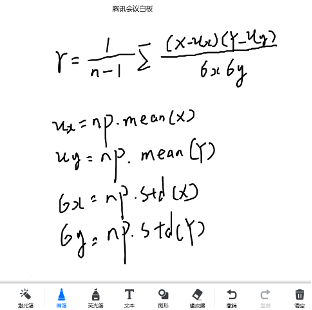 腾讯会议白板
r = 1/(n-1) Σ (X-ux)(Y-uy)/(6x6y)
ux = np.mean(X)
uy = np.mean(Y)
6x = np.std(X)
6y = np.std(Y)
激光笔 画笔 荧光笔 文本 图形 橡皮擦 撤销 恢复 清空